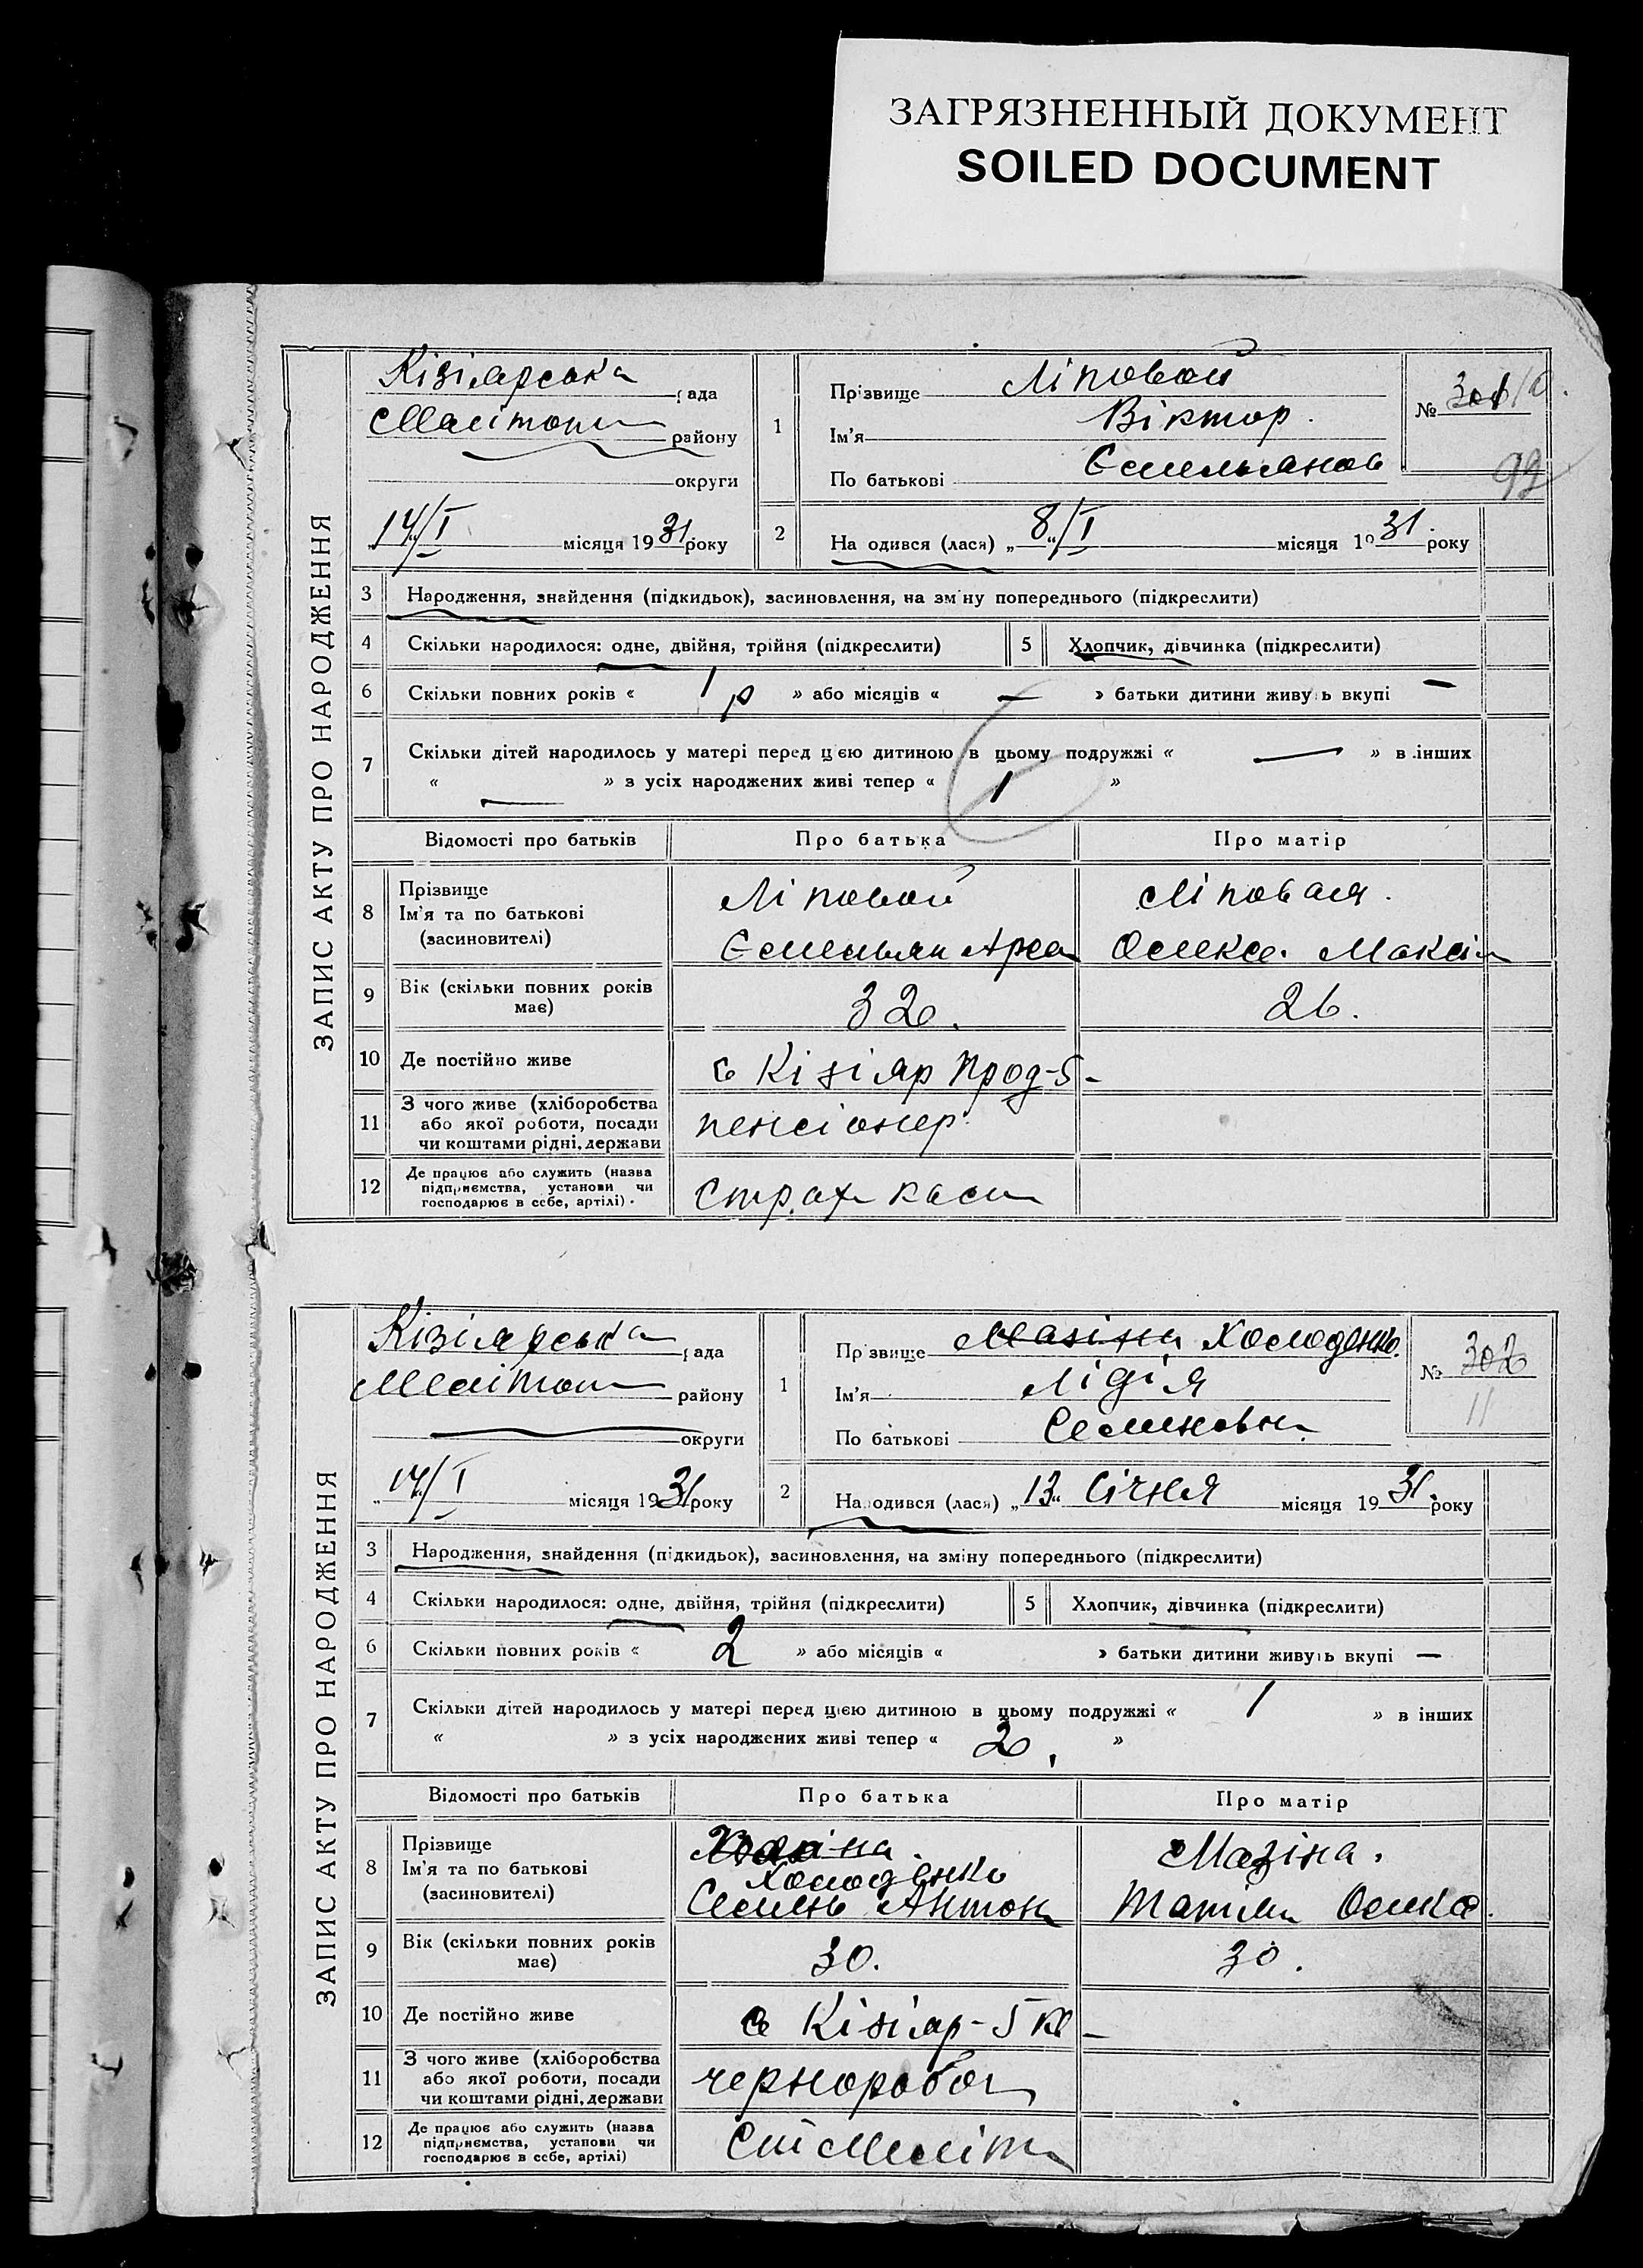 ЗАГРЯЗНЕННЫЙ ДОКУМЕНТ
SOILED DOCUMENT
ЗАПИС АКТУ ПРО НАРОДЖЕННЯ
Кізіярська рада
Меліτοп району
округи
14/I місяця 1931 року
1
Прізвище Ліповой
Ім'я Віктор.
По батьковіЄмельянов
№ 301/10.
99
2
На одився (лася) „8"/I місяця 1931. року
3 Народження, знайдення (підкидьок), засиновлення, на зміну попереднього (підкреслити)
4 Скільки народилося: одне, двійня, трійня (підкреслити) 5 Хлопчик, дівчинка (підкреслити)
6 Скільки повних років « 1 р » або місяців « — » батьки дитини живуть вкупі —
7 Скільки дітей народилось у матері перед цією дитиною в цьому подружжі « — » в інших
« — » з усіх народжених живі тепер « 1 »
Відомості про батьків Про батька Про матір
8 Прізвище Ліповой Ліповая.
Ім'я та по батькові
(засиновителі) Ємельян Олекс. Максім
9 Вік (скільки повних років має) 32. 26.
10 Де постійно живе с Кізіяр Прод-5 -
11 З чого живе (хліборобства
або якої роботи, посади
чи коштами рідні, держави пенсіонер.
12 Де працює або служить (назва
підприємства, установи чи
господарює в себе, артілі). Страх каси
ЗАПИС АКТУ ПРО НАРОДЖЕННЯ
Кізіярська рада
Меліτοп району
округи
„14"/I місяця 1931 року
1
Прізвище Мазіна Холоденко.
Ім'я Лідія
По батькові Семеновн.
№ 302
11
2
Народився (лася) „13" Січня місяця 1931. року
3 Народження, знайдення (підкидьок), засиновлення, на зміну попереднього (підкреслити)
4 Скільки народилося: одне, двійня, трійня (підкреслити) 5 Хлопчик, дівчинка (підкреслити)
6 Скільки повних років « 2 » або місяців « » батьки дитини живуть вкупі —
7 Скільки дітей народилось у матері перед цією дитиною в цьому подружжі « 1 » в інших
« » з усіх народжених живі тепер « 2 »
Відомості про батьків Про батька Про матір
8 Прізвище Мазіна.
Ім'я та по батькові Холоденко
(засиновителі) Семень Антон Татіян Олекс.
9 Вік (скільки повних років має) 30. 30.
10 Де постійно живе с Кізіяр-5 кв -
11 З чого живе (хліборобства
або якої роботи, посади
чи коштами рідні, держави чернороботч
12 Де працює або служить (назва
підприємства, установи чи
господарює в себе, артілі) Ст Меліт